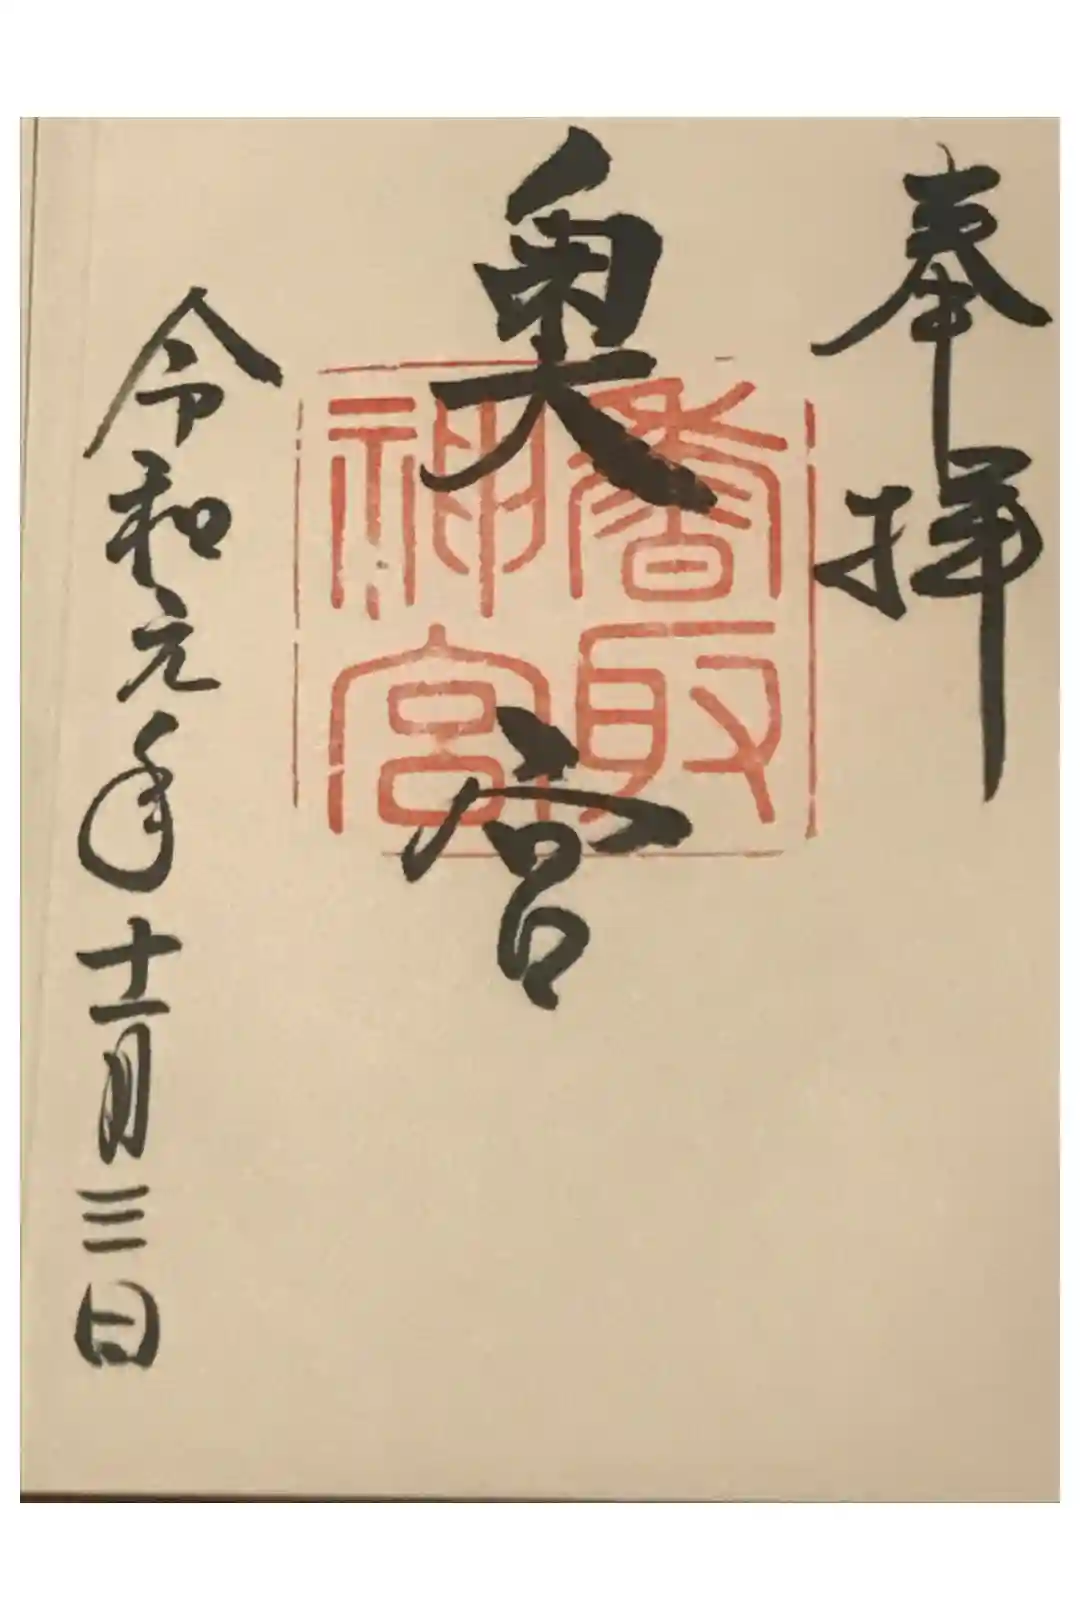 奉拝
奥宮
香取
神宮
令和元年十一月三日